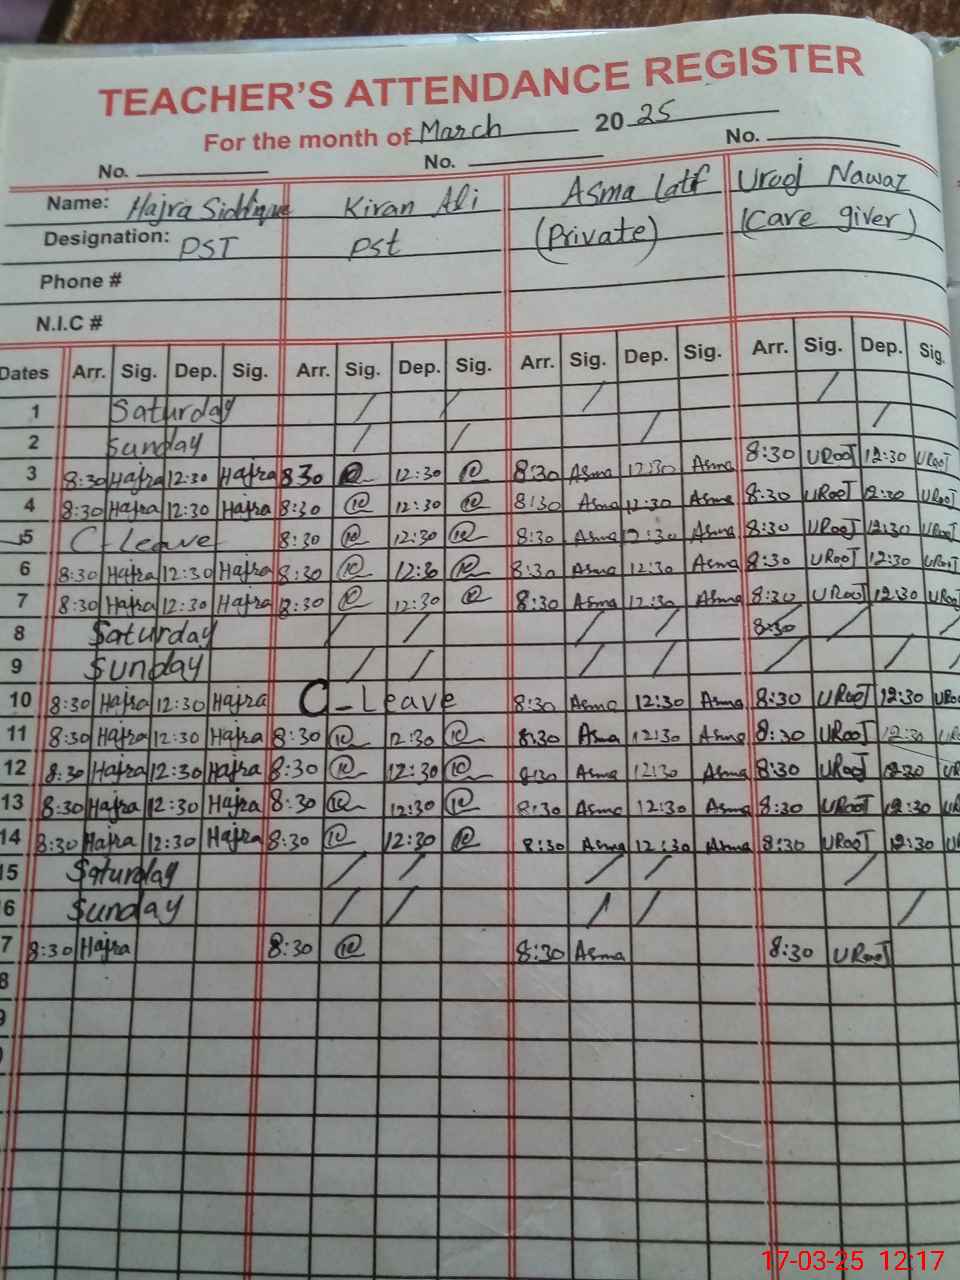 TEACHER'S ATTENDANCE REGISTER
For the month of March 2025
No. No. No.
Name: Hajra Siddique Kiran Ali Asma Latif Urooj Nawaz
Designation: PST Pst (Private) (Care giver)
Phone #
N.I.C #
Dates Arr. Sig. Dep. Sig. Arr. Sig. Dep. Sig. Arr. Sig. Dep. Sig. Arr. Sig. Dep. Sig.
1 Saturday / / / /
2 Sunday / / / /
3 8:30 Hajra 12:30 Hajra 830 12:30 8:30 Asma 12:30 Asma 8:30 URooJ 12:30 URooJ
4 8:30 Hajra 12:30 Hajra 8:30 12:30 8:30 Asma 12:30 Asma 8:30 URooJ 12:30 URooJ
5 C-Leave 8:30 12:30 8:30 Asma 12:30 Asma 8:30 URooJ 12:30 URooJ
6 8:30 Hajra 12:30 Hajra 8:30 12:30 8:30 Asma 12:30 Asma 8:30 URooJ 12:30 URooJ
7 8:30 Hajra 12:30 Hajra 8:30 12:30 8:30 Asma 12:30 Asma 8:30 URooJ 12:30 URooJ
8 Saturday / / / / 8:30 / /
9 Sunday / / / / / / /
10 8:30 Hajra 12:30 Hajra C-Leave 8:30 Asma 12:30 Asma 8:30 URooJ 12:30 URoo
11 8:30 Hajra 12:30 Hajra 8:30 12:30 8:30 Asma 12:30 Asma 8:30 URooJ 12:30 UR
12 8:30 Hajra 12:30 Hajra 8:30 12:30 8:30 Asma 12:30 Asma 8:30 URooJ 12:30 UR
13 8:30 Hajra 12:30 Hajra 8:30 12:30 8:30 Asma 12:30 Asma 8:30 URooJ 12:30 UR
14 8:30 Hajra 12:30 Hajra 8:30 12:30 8:30 Asma 12:30 Asma 8:30 URooJ 12:30 UR
15 Saturday / / / / /
6 Sunday / / / / /
7 8:30 Hajra 8:30 8:30 Asma 8:30 URooJ
8
9
17-03-25 12:17